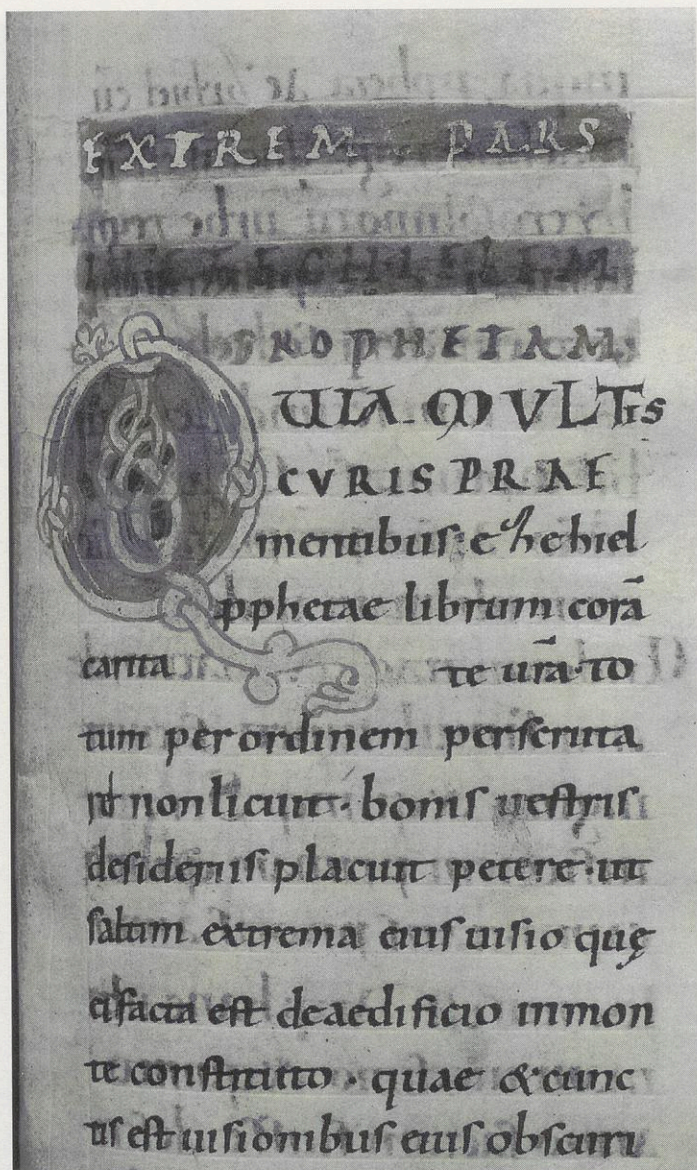 EXTREM PARS
HIEZECHIELEM
PROPHETAM
QUIA MULTIS
CURIS PRAE
mentibus ezechiel
pphetae librum corā
carita te urā to
tum per ordinem perscruta
ri non licuit · bonis uestris
desideriis placuit petere · ut
saltim extrema eius uisio quę
ei facta est de aedificio in mon
te constituto · quae & cunc
tis est uisionibus eius obscuri